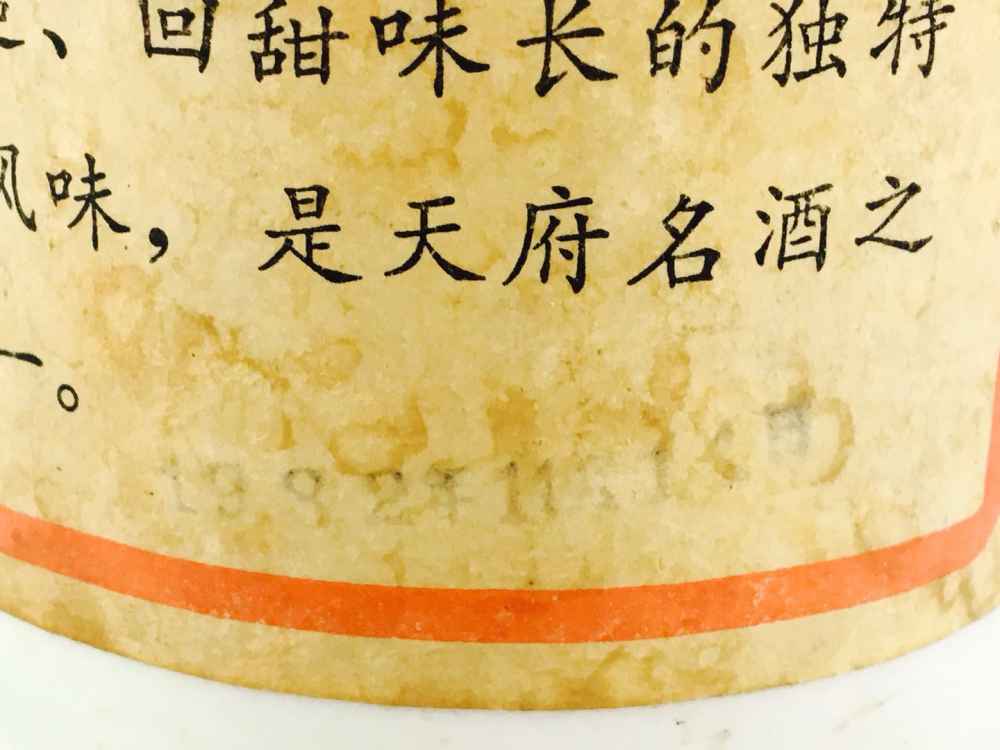 、回甜味长的独特
风味，是天府名酒之
一。
1992年11月1日